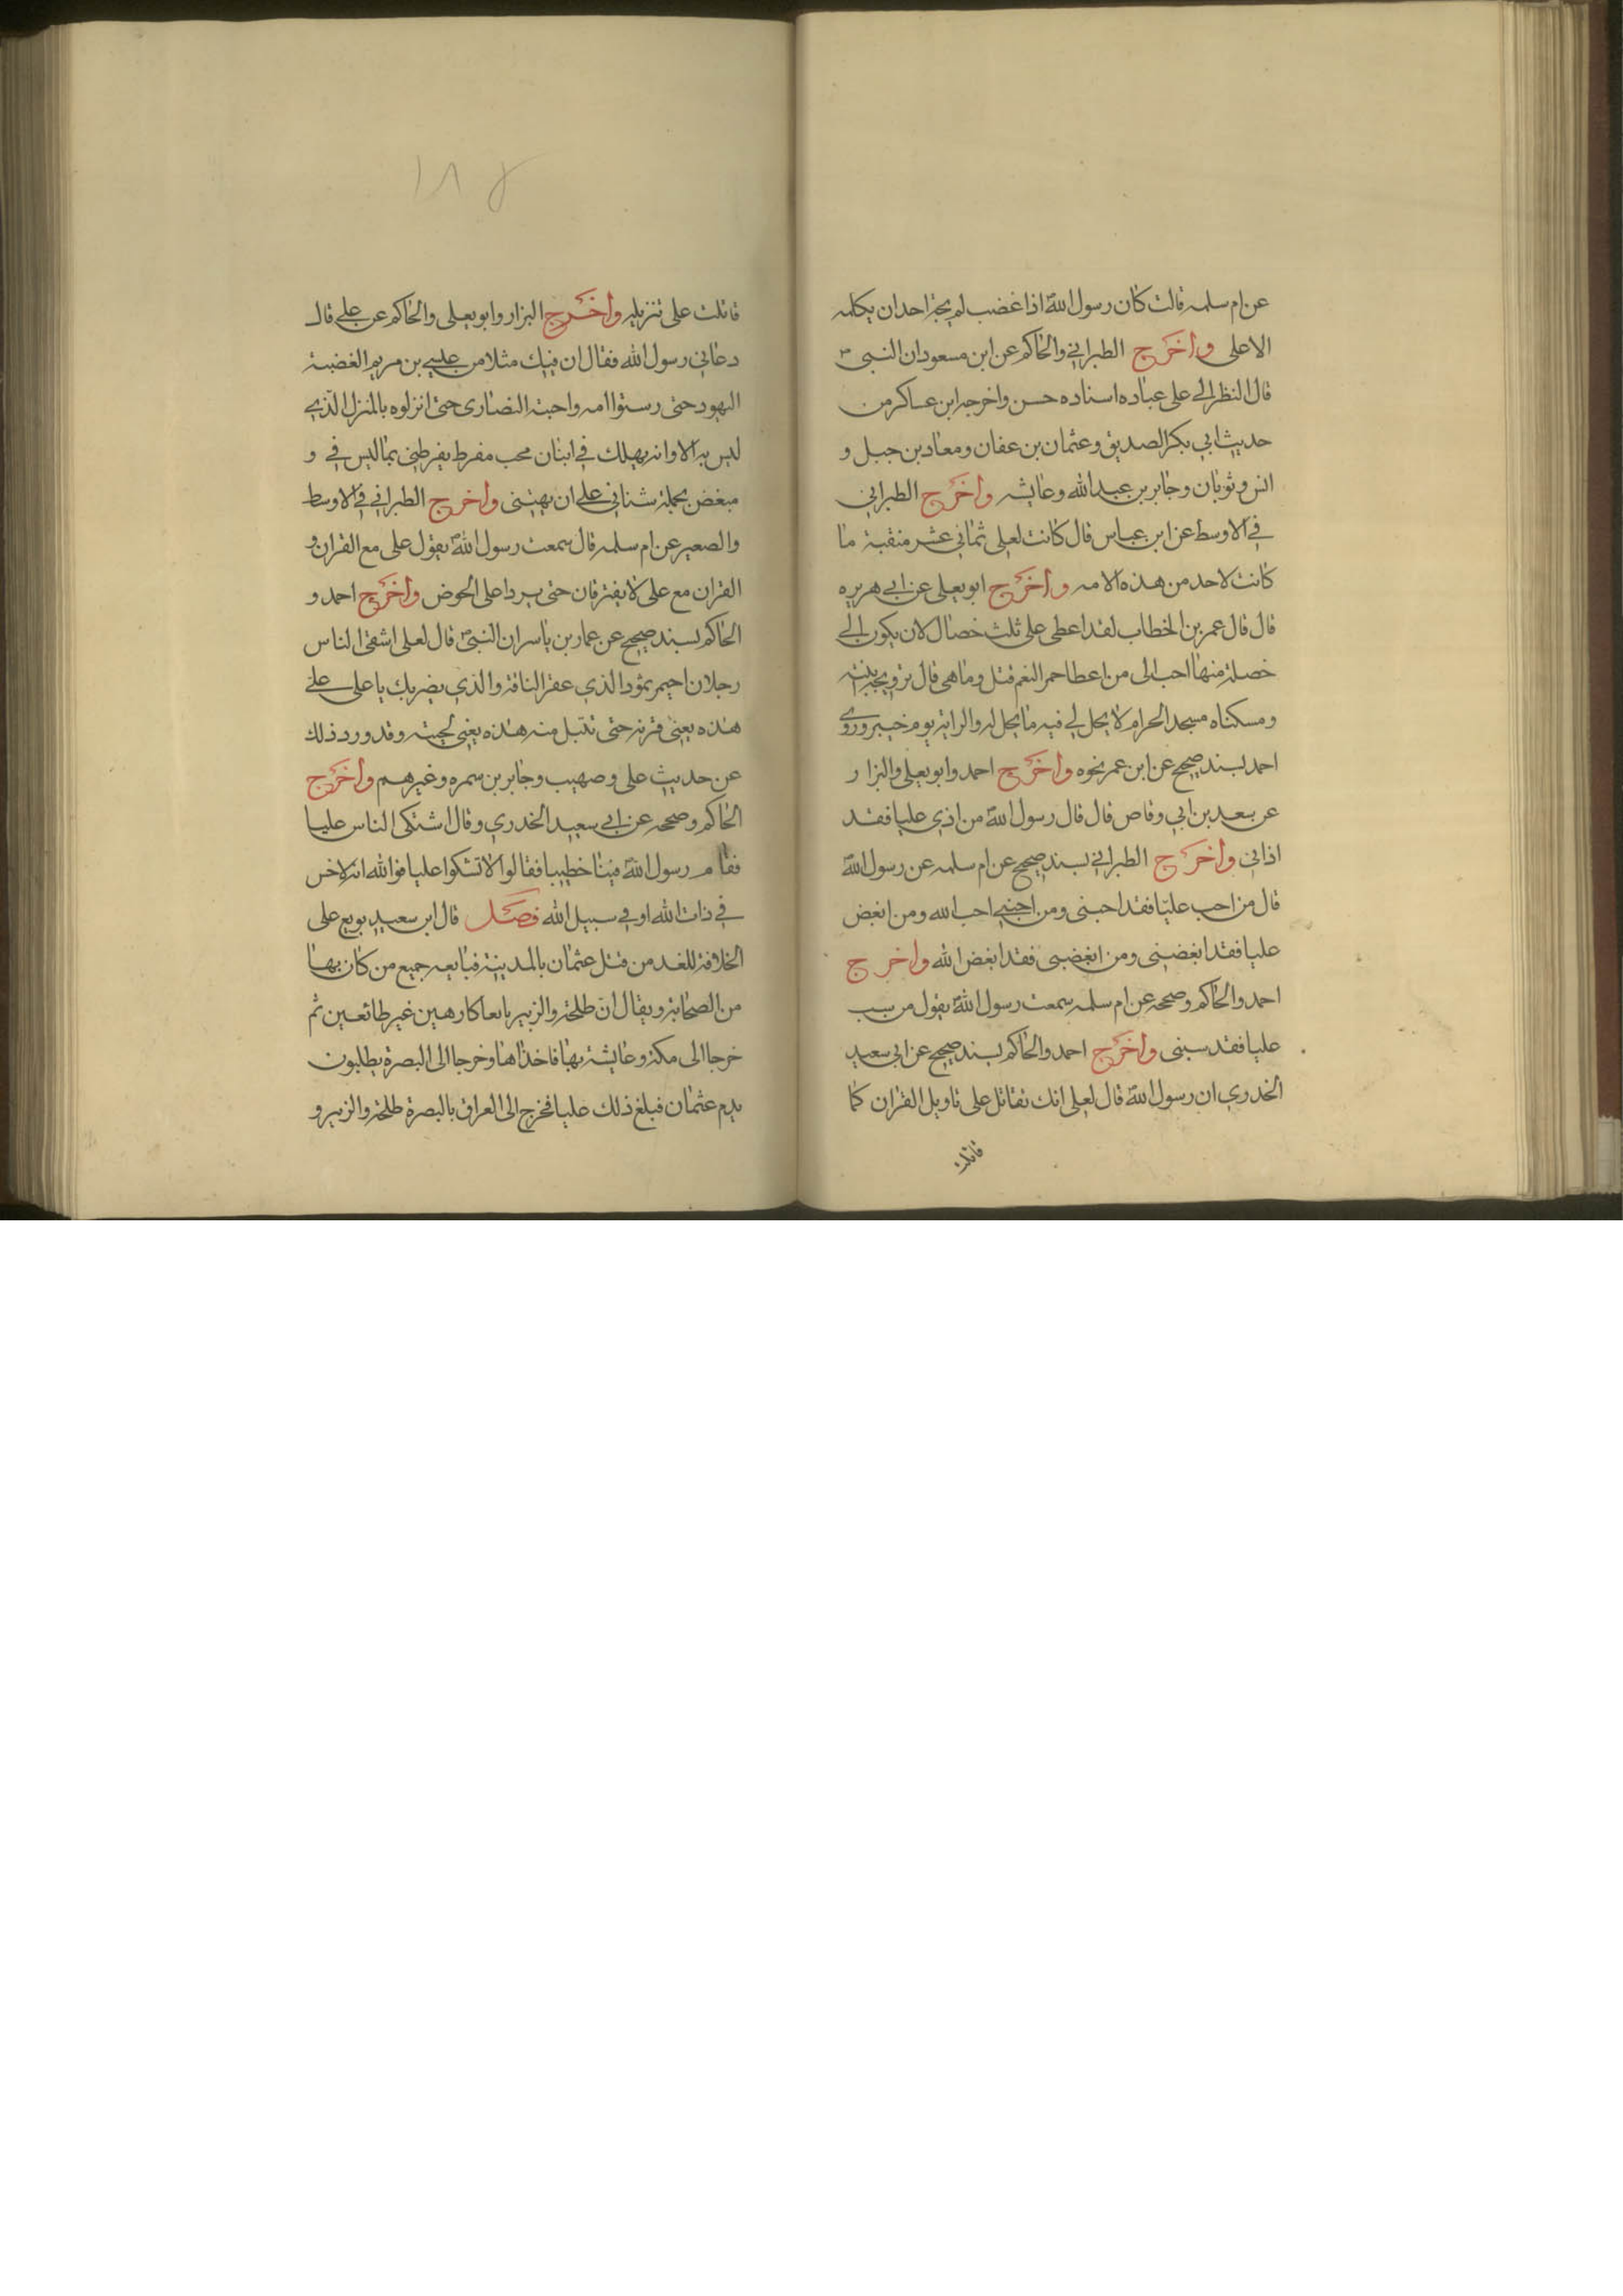 عن ام سلمه قالت كان رسول الله اذا غضب لم يجتر احد ان يكلمه
الا على واخرج الطبراني والحاكم عن ابن مسعود ان النبي
قال النظر الى على عباده اسناده حسن واخرجه ابن عساكر من
حديث ابي بكر الصديق وعثمان بن عفان ومعاد بن جبل و
انس وثوبان وجابر بن عبد الله وعايشه واخرج الطبراني
في الاوسط عن ابن عباس قال كانت لعلى ثماني عشر منقبة ما
كانت لاحد من هذه الامه واخرج ابو يعلى عن ابي هريره
قال قال عمر بن الخطاب لقد اعطى على ثلث خصال لان يكون لي
خصلة منها احب الى من اعطا حمر النعم فتل وما هي قال تزويجه ابنته
ومسكناه مسجد الحرام لا يحل لي فيه ما يحل له والراية يوم خيبر وروى
احمد بسند صحيح عن ابن عمر نحوه واخرج احمد وابو يعلى والبزار
عن سعد بن ابي وقاص قال قال رسول الله من اذي عليا فقد
اذاني واخرج الطبراني بسند صحيح عن ام سلمه عن رسول الله
قال من احب عليا فقد احبنى ومن احبني احب الله ومن ابغض
عليا فقد ابغضنى ومن ابغضنى فقد ابغض الله واخرج
احمد والحاكم وصححه عن ام سلمه سمعت رسول الله يقول من سب
عليا فقد سبنى واخرج احمد والحاكم بسند صحيح عن ابى سعيد
الخدري ان رسول الله قال لعلى انك تقاتل على تاويل القران كما
قاتلت
١٨٤
قاتلت على تنزيله واخرج البزار وابو يعلى والحاكم عن علي قال
دعاني رسول الله فقال ان فيك مثلا من عيسي بن مريم الغضبة
اليهود حتى امه واحبته النصارى حتى انزلوه بالمنزل الذي
ليس به الا وانه يهلك في اثنان محب مفرط يفرطني بما ليس في و
مبغض يحمله شناني على ان يهتنى واخرج الطبراني في الاوسط
والصعير عن ام سلمه قال سمعت رسول الله يقول على مع القران و
القران مع على لا يفترقان حتى يردا على الحوض واخرج احمد و
الحاكم بسند صحيح عن عمار بن ياسر ان النبي قال لعلى اشقى الناس
رجلان احيمر ثمود الذي عقر الناقة والذي يضربك يا على على
هذه يعني قرنه حتى تبتل منه هذه يعني لحيته وقد ورد ذلك
عن حديث على وصهيب وجابر بن سمره وغيرهم واخرج
الحاكم وصححه عن ابي سعيد الخدري وقال اشتكى الناس عليا
فقام رسول الله فينا خطيبا فقالوا لا تشكوا عليا فوالله انه لاخس
في ذات الله او في سبيل الله فصل قال ابن سعيد بويع على
الخلافة للغد من قتل عثمان بالمدينة فبايعه جميع من كان بها
من الصحابة ويقال ان طلحة والزبير بايعا كارهين غير طائعين ثم
خرجا الى مكة وعايشة بها فاخذاها وخرجا الى البصرة يطلبون
بدم عثمان فبلغ ذلك عليا فخرج الى العراق بالبصرة طلحة والزبير و